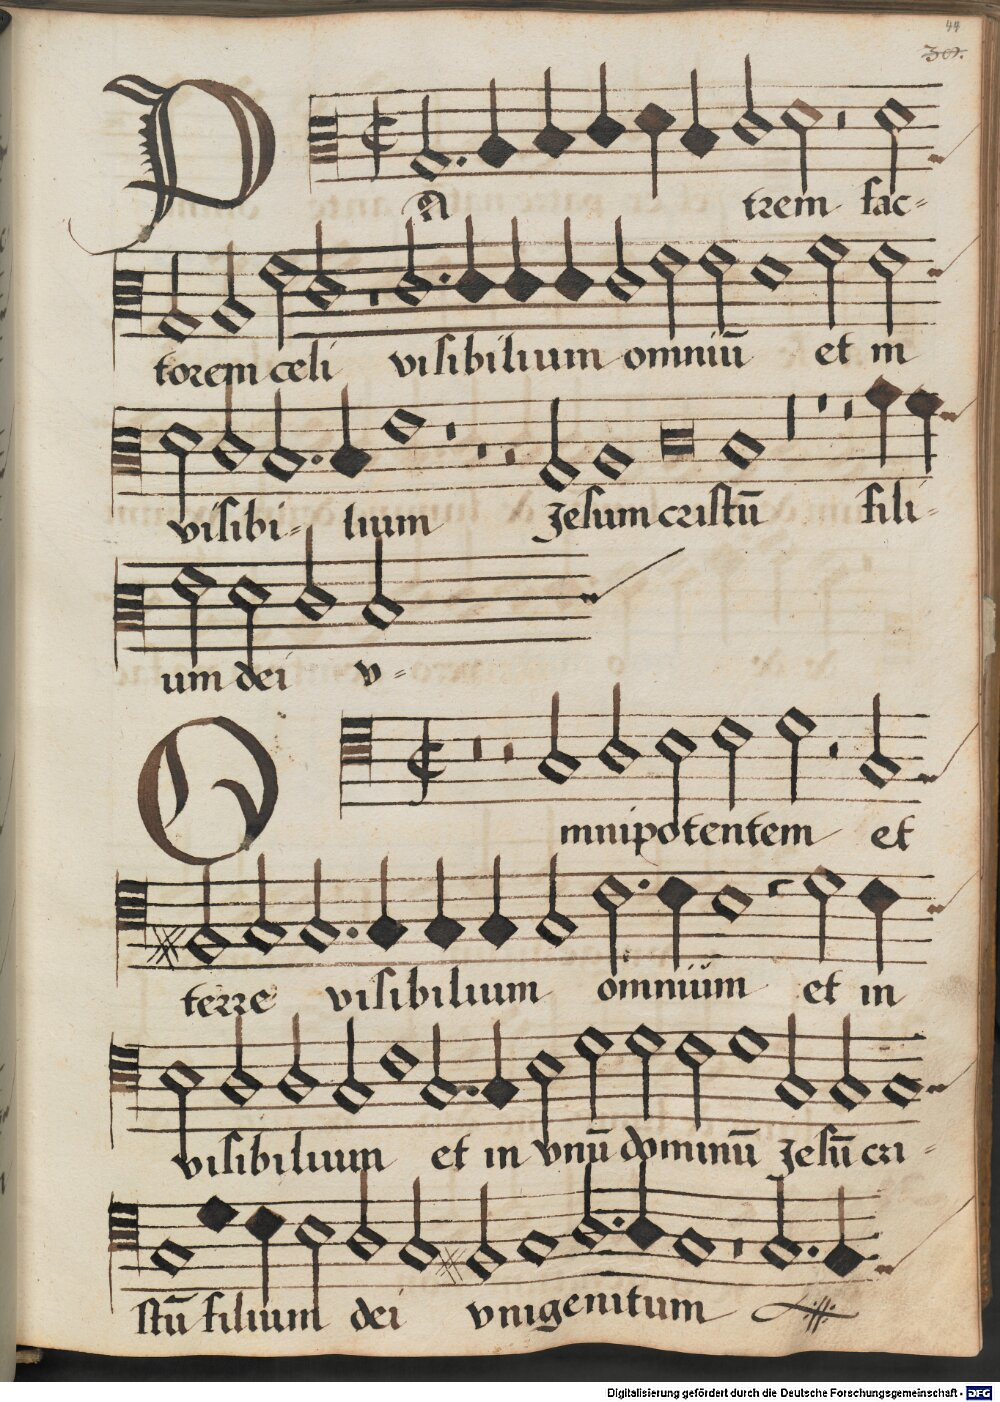 44
30.
PA trem fac=
torem celi visibilium omniū et in
visibi= lium Jesum cristū fili=
um dei v=
Omnipotentem et
terre visibilium omnium et in
visibilium et in vnū dominū Jesū cri=
stū filium dei vnigenitum
Digitalisierung gefördert durch die Deutsche Forschungsgemeinschaft - DFG